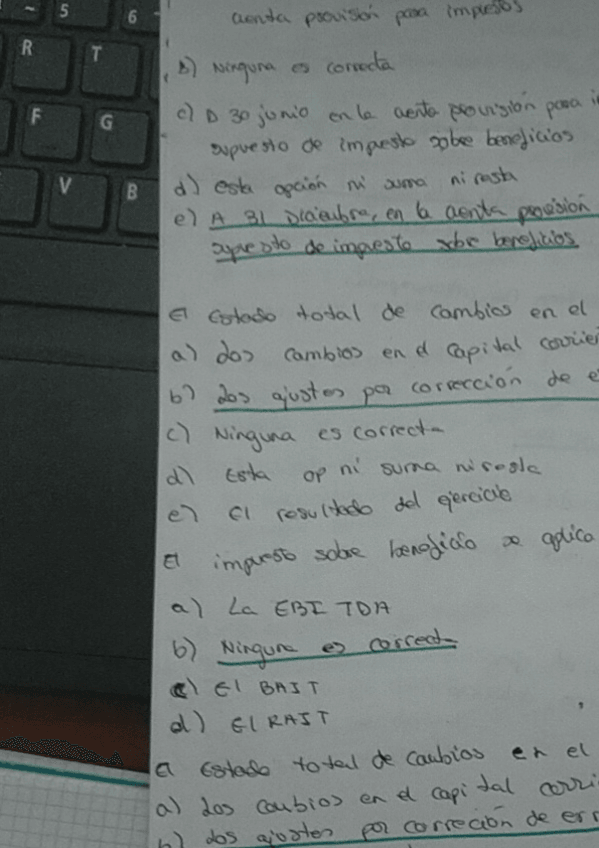 ~ 5 6
R T
F G
V B
cuenta provisión para impuestos
b) Ninguna es correcta
c) D 30 junio en la cuenta provisión para i
supuesto de impuesto sobre beneficios
d) esta opción ni suma ni resta
e) A 31 Diciembre, en la cuenta provisión
supuesto de impuesto sobre beneficios
El Estado total de cambios en el
a) los cambios en el capital corrien
b) los ajustes por corrección de e
c) Ninguna es correcta
d) Esta op ni suma ni resta
e) El resultado del ejercicio
El impuesto sobre beneficio se aplica
a) La EBITDA
b) Ninguna es correcta
c) El BAIT
d) El RAIT
El Estado total de cambios en el
a) los cambios en el capital corri
b) los ajustes por correción de err